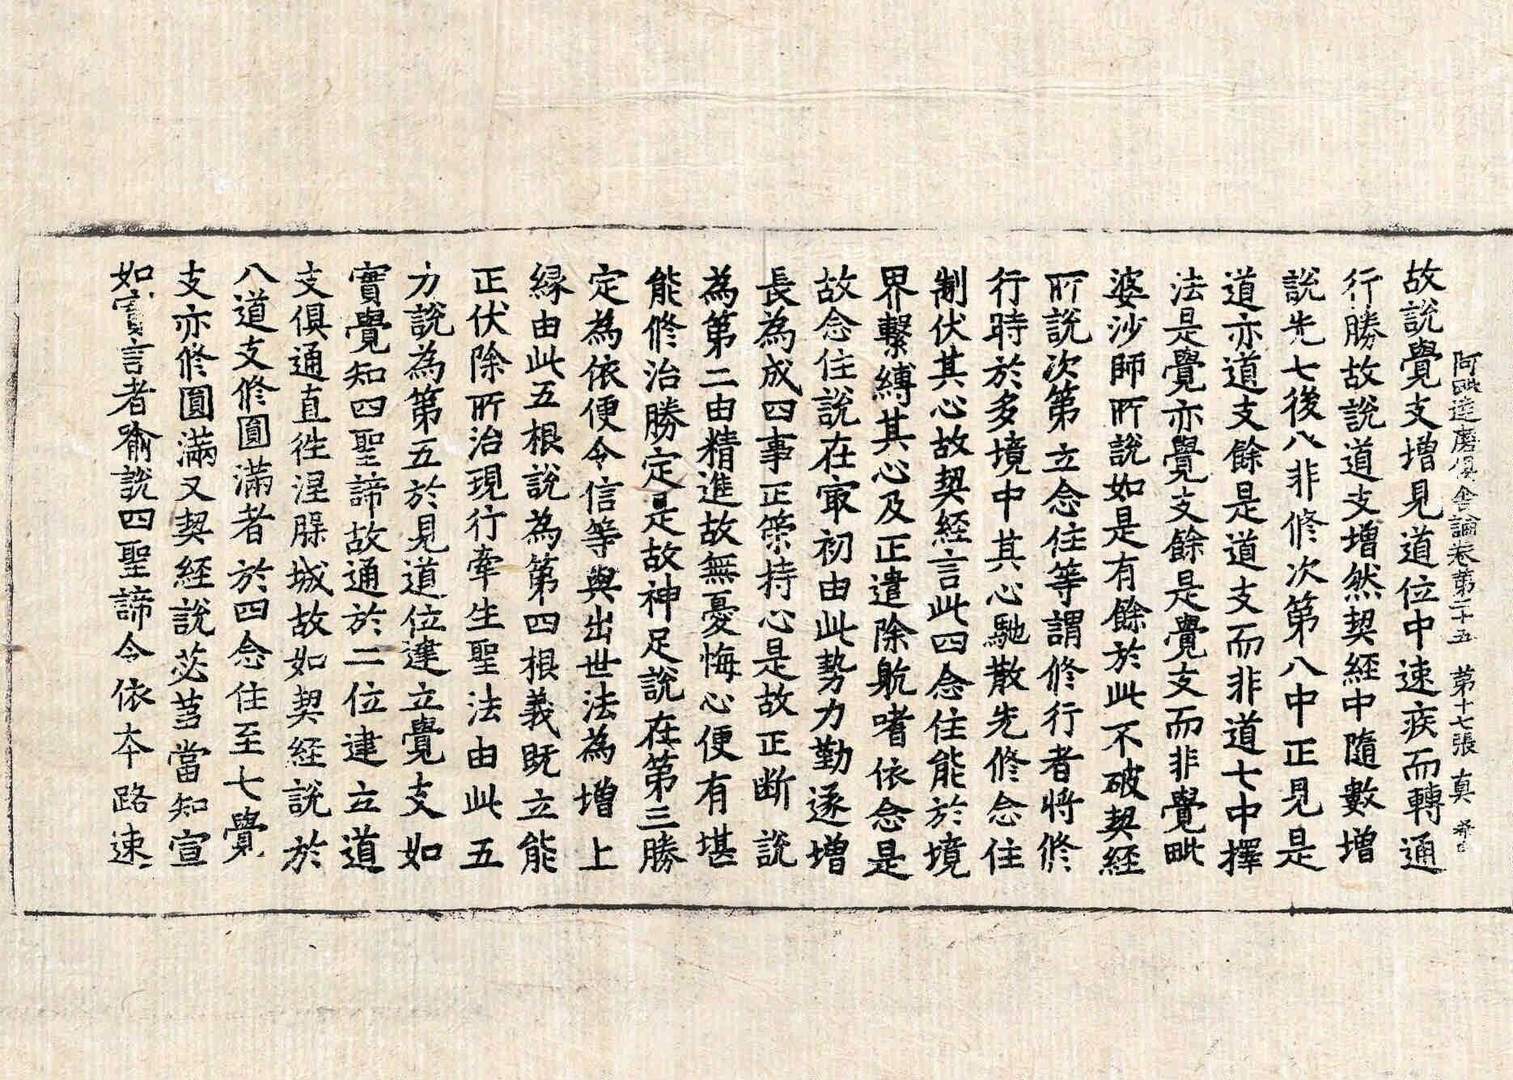 阿毗達磨俱舍論卷第二十五 第十七張 真
故說覺支增見道位中速疾而轉通
行勝故說道支增然契經中隨數增
說先七後八非修次第八中正見是
道亦道支餘是道支而非道七中擇
法是覺亦覺支餘是覺支而非覺毗
婆沙師所說如是有餘於此不破契經
所說次第立念住等謂修行者將修
行時於多境中其心馳散先修念住
制伏其心故契經言此四念住能於境
界繫縛其心及正遣除躭嗜依念是
故念住說在㝡初由此勢力勤遂增
長為成四事正策持心是故正斷說
為第二由精進故無憂悔心便有堪
能修治勝定是故神足說在第三勝
定為依便令信等與出世法為增上
緣由此五根說為第四根義既立能
正伏除所治現行牽生聖法由此五
力說為第五於見道位建立覺支如
實覺知四聖諦故通於二位建立道
支俱通直徃涅槃城故如契經說於
八道支修圓滿者於四念住至七覺
支亦修圓滿又契經說苾芻當知宣
如實言者喻說四聖諦令依本路速